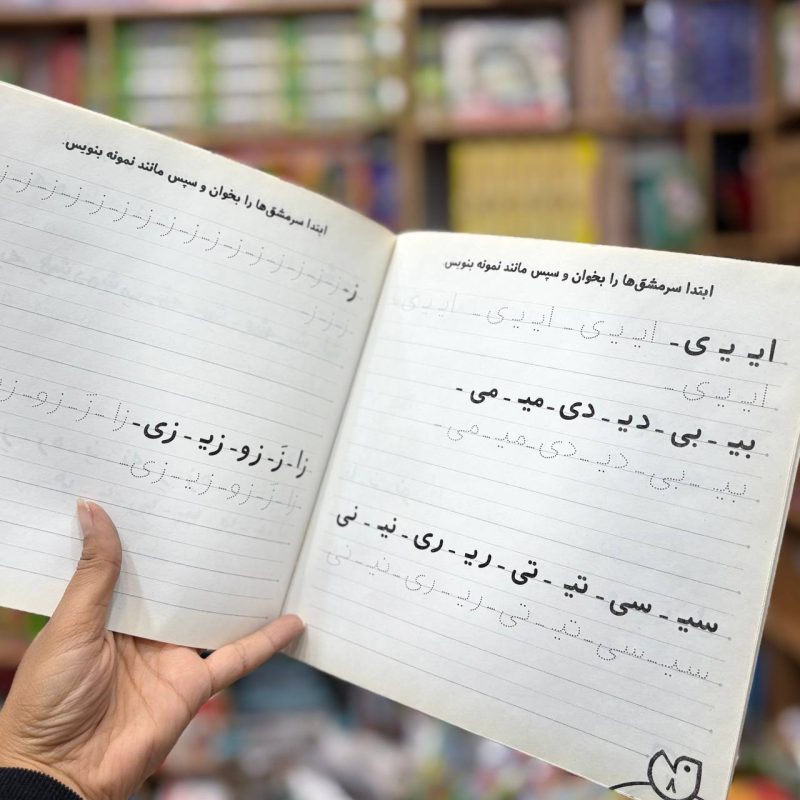 ابتدا سرمشق‌ها را بخوان و سپس مانند نمونه بنویس.
ایـ یـ ی - ایـ یـ ی - ایـ یـ ی - ایـ یـ ی -
ایـ یـ ی -
بیـ - بی - دیـ - دی - میـ - می -
بیـ - بی - دیـ - دی - میـ - می -
سیـ - سی - تیـ - تی - ریـ - ری - نیـ - نی
سیـ - سی - تیـ - تی - ریـ - ری - نیـ - نی
۸
ابتدا سرمشق‌ها را بخوان و سپس مانند نمونه بنویس.
ز - ز - ز - ز - ز - ز - ز - ز - ز - ز - ز - ز - ز - ز - ز
ز - ز - ز -
زا - زَ - زو - زیـ - زی - زا - زَ - زو - ز
زا - زَ - زو - زیـ - زی -